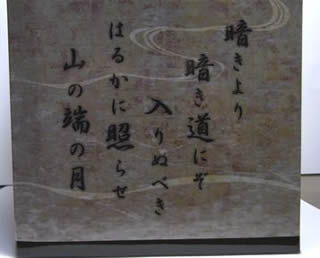 暗きより
暗き道にぞ
入りぬべき
はるかに照らせ
山の端の月